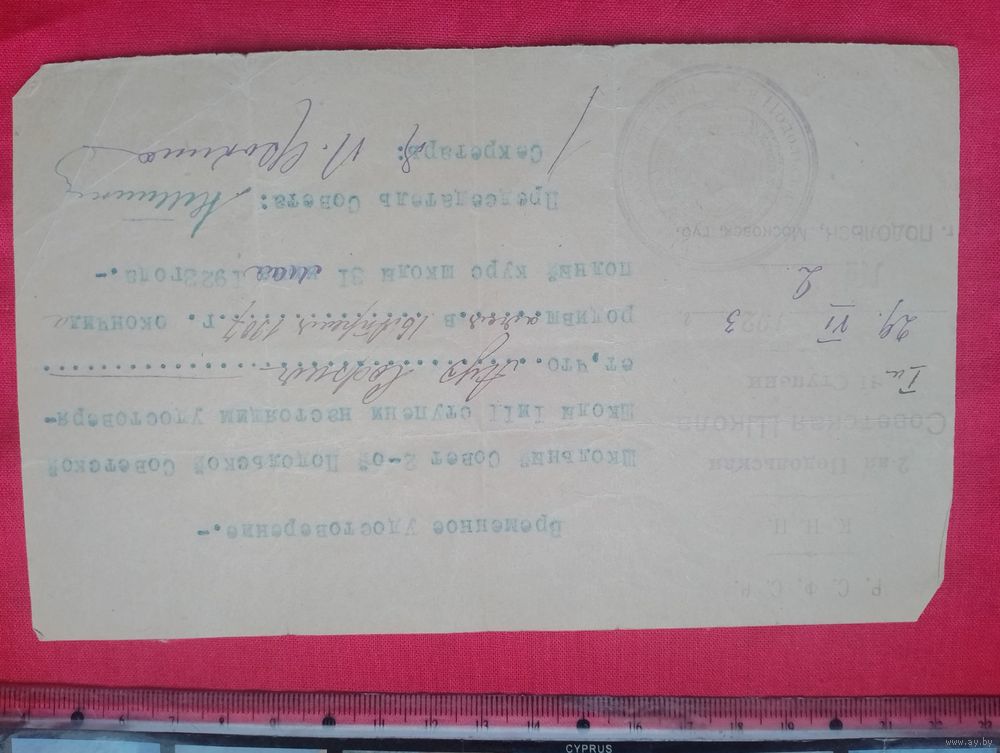 Р. С. Ф. С. Р.
К. Н. П.
2-ая Подольская
Советская Школа
I и II Ступени
29. VI 1923 г.
№ 2.
г. Подольск, Московск. губ.
Временное удостоверение.-
Школьный Совет 2-ой Подольской Советской
Школы IиII ступени настоящим удостоверя-
ет, что
родивш в 1907 г. окончила
полный курс школы 31 мая 1923года.-
Председатель Совета:
Секретарь:
CYPRUS
www.ay.by